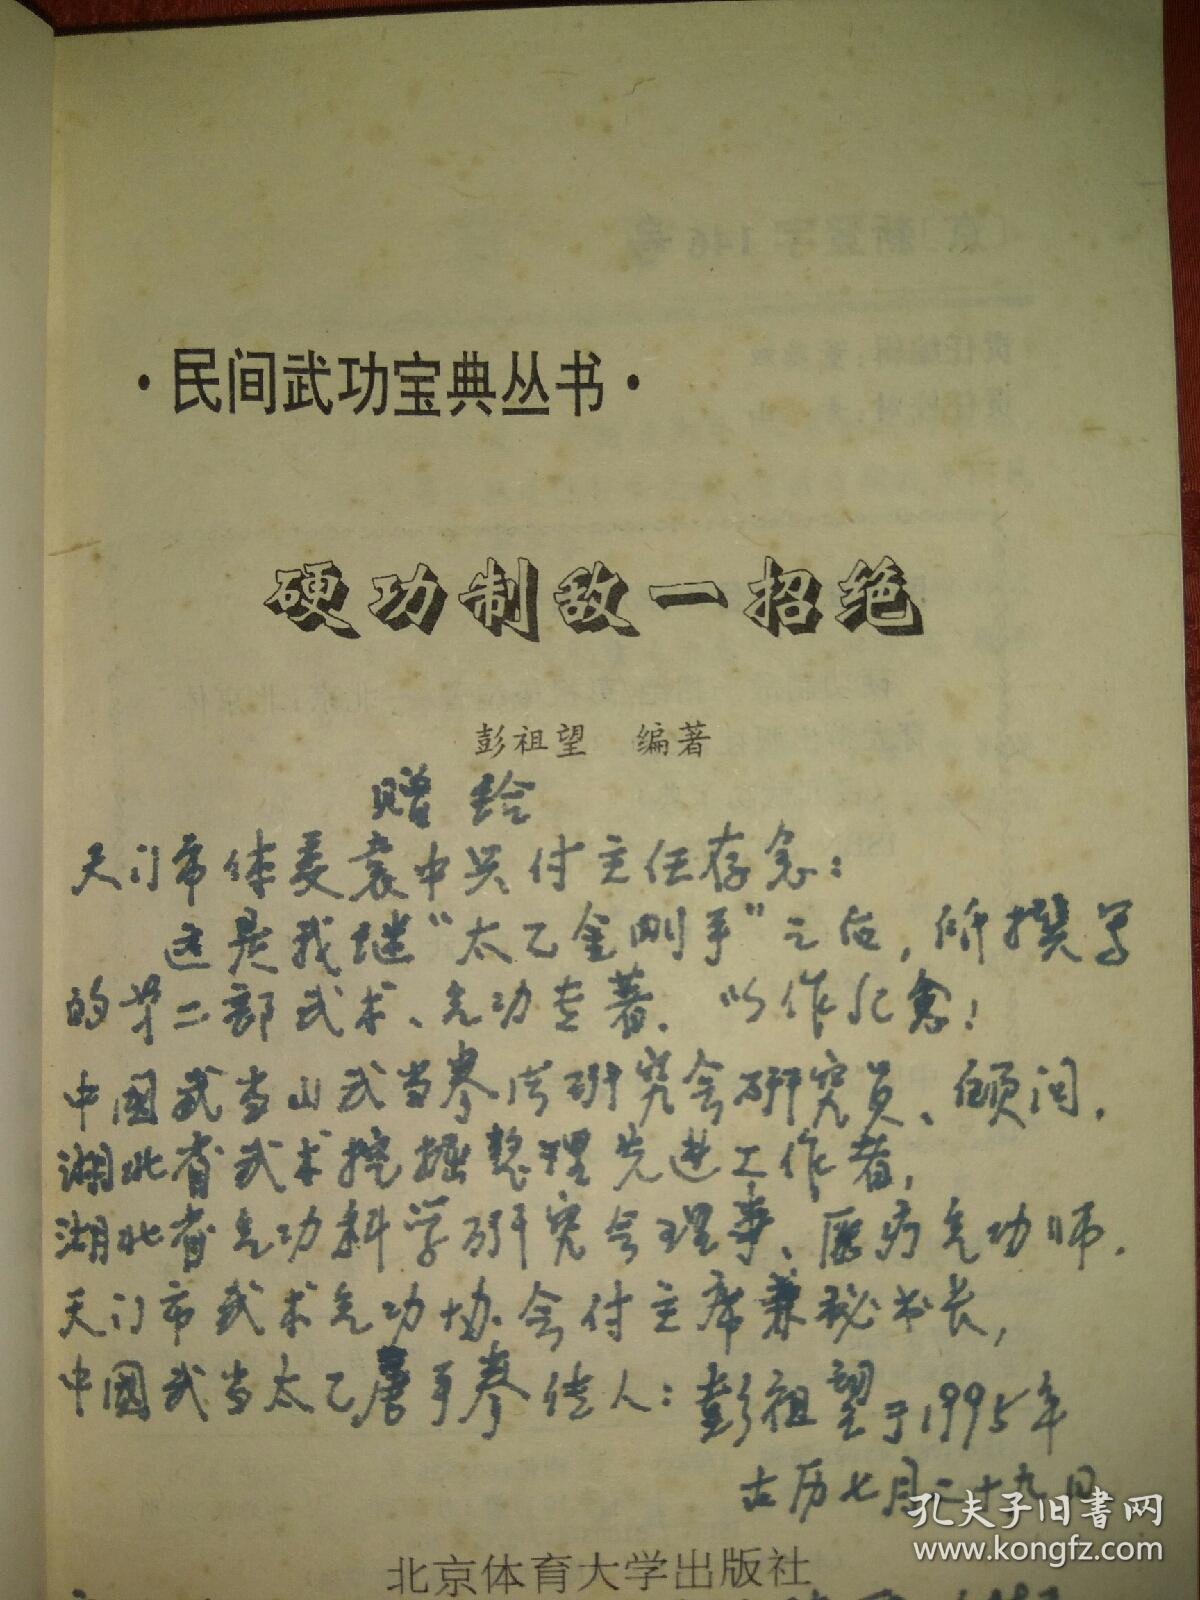 ·民间武功宝典丛书·
硬功制敌一招绝
彭祖望 编著
赠给
天门市体委袁中兴付主任存念：
这是我继“太乙金刚手”之后，所撰写
的第二部武术、气功专著。以作纪念！
中國武当山武当拳法研究会研究员、顾问，
湖北省武术挖掘整理先进工作者，
湖北省气功科学研究会理事、医疗气功师，
天门市武术气功协会付主席兼秘书长，
中國武当太乙唐手拳传人：彭祖望于1995年
古历七月二十九日
北京体育大学出版社
孔夫子旧书网
www.kongfz.com